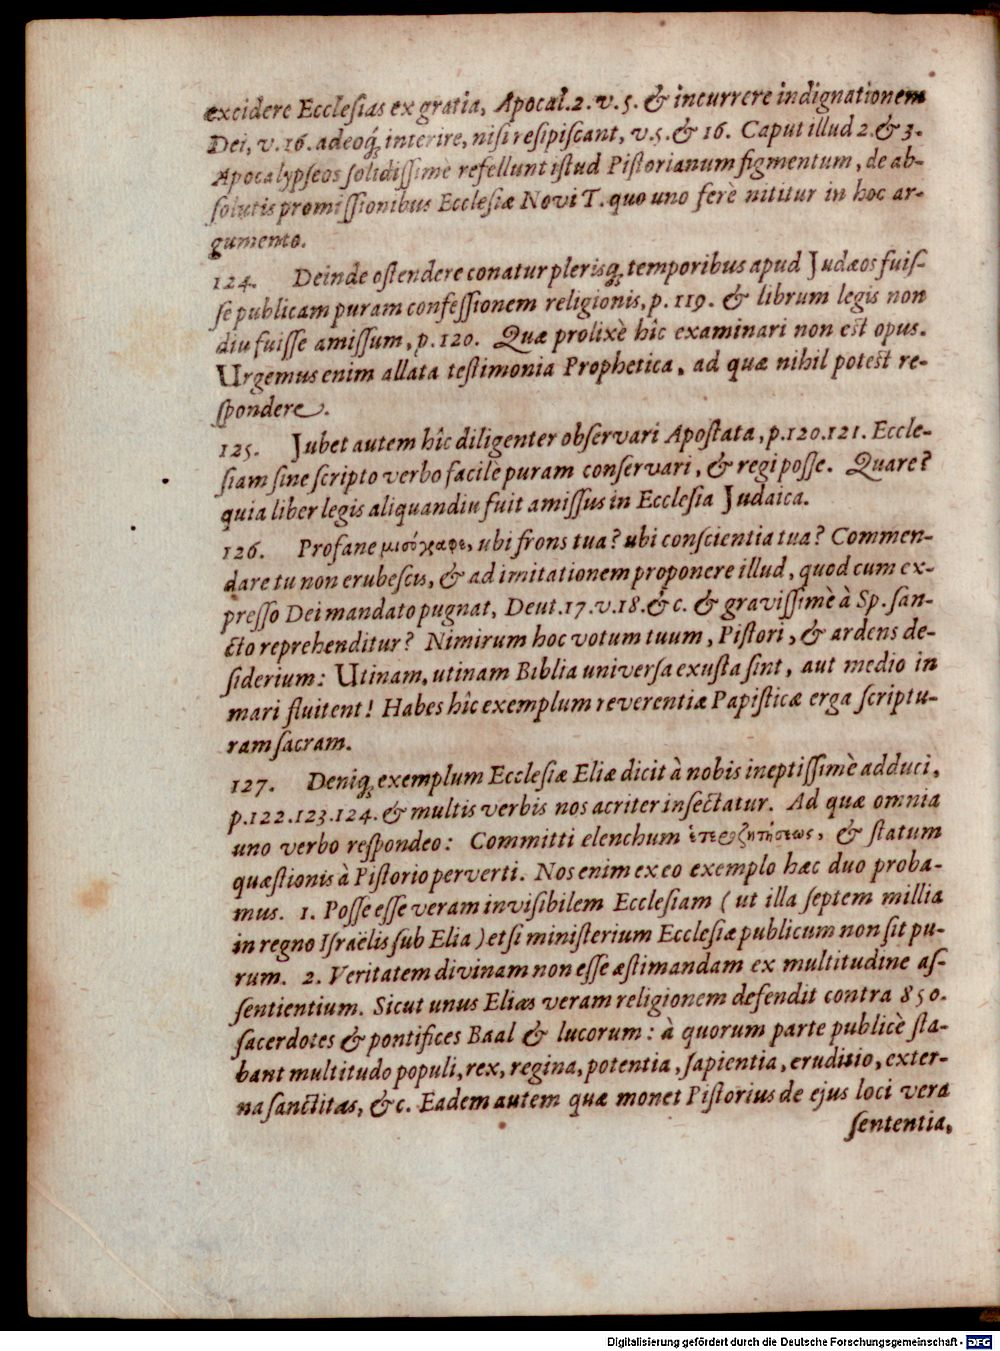 excidere Ecclesias ex gratia, Apocal.2.v.5. & incurrere indignationem
Dei, v.16. adeoq́; interire, nisi resipiscant, v.5. & 16. Caput illud 2.& 3.
Apocalypseos solidissimè refellunt istud Pistorianum figmentum, de ab-
solutis promissionibus Ecclesiæ Novi T. quo uno ferè nititur in hoc ar-
gumento.
124. Deinde ostendere conatur plerisq́; temporibus apud Judæos fuis-
se publicam puram confessionem religionis, p. 119. & librum legis non
diu fuisse amissum, p.120. Quæ prolixè hîc examinari non est opus.
Urgemus enim allata testimonia Prophetica, ad quæ nihil potest re-
spondere.
125. Jubet autem hîc diligenter observari Apostata, p.120.121. Eccle-
siam sine scripto verbo facile puram conservari, & regi posse. Quare?
quia liber legis aliquandiu fuit amissus in Ecclesia Judaica.
126. Profane μισόγραφε, ubi frons tua? ubi conscientia tua? Commen-
dare tu non erubescis, & ad imitationem proponere illud, quod cum ex-
presso Dei mandato pugnat, Deut.17.v.18.&c. & gravissimè à Sp. san-
cto reprehenditur? Nimirum hoc votum tuum, Pistori, & ardens de-
siderium: Utinam, utinam Biblia universa exusta sint, aut medio in
mari fluitent! Habes hîc exemplum reverentiæ Papisticæ erga scriptu-
ram sacram.
127. Deniq́; exemplum Ecclesiæ Eliæ dicit à nobis ineptissimè adduci,
p.122.123.124. & multis verbis nos acriter insectatur. Ad quæ omnia
uno verbo respondeo: Committi elenchum ἑτεροζητήσεως, & statum
quæstionis à Pistorio perverti. Nos enim ex eo exemplo hæc duo proba-
mus. 1. Posse esse veram invisibilem Ecclesiam (ut illa septem millia
in regno Israëlis sub Elia) etsi ministerium Ecclesiæ publicum non sit pu-
rum. 2. Veritatem divinam non esse æstimandam ex multitudine as-
sentientium. Sicut unus Elias veram religionem defendit contra 850.
sacerdotes & pontifices Baal & lucorum: à quorum parte publicè sta-
bant multitudo populi, rex, regina, potentia, sapientia, eruditio, exter-
na sanctitas, &c. Eadem autem quæ monet Pistorius de ejus loci vera
sententia,
Digitalisierung gefördert durch die Deutsche Forschungsgemeinschaft - DFG